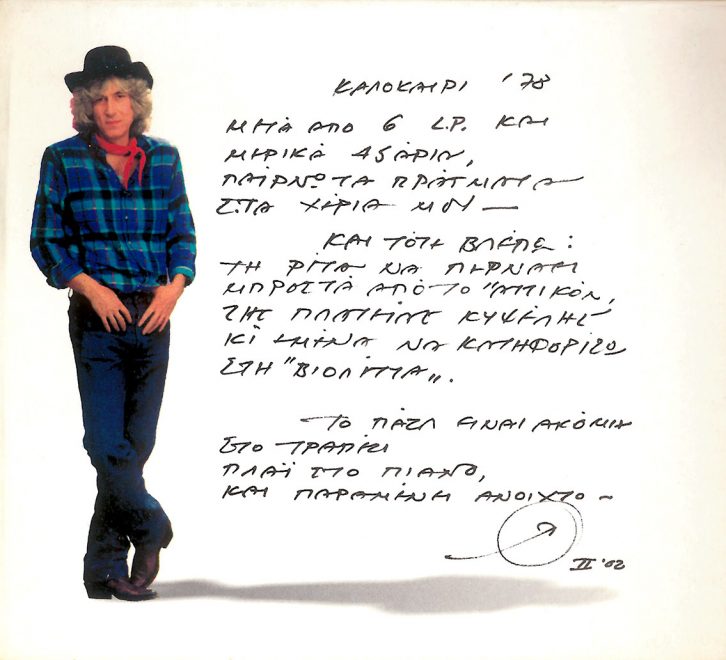 ΚΑΛΟΚΑΙΡΙ '78
ΜΕΤΑ ΑΠΟ 6 L.P. ΚΑΙ
ΜΕΡΙΚΑ 45ΑΡΙΑ,
ΠΑΙΡΝΩ ΤΑ ΠΡΑΓΜΑΤΑ
ΣΤΑ ΧΕΡΙΑ ΜΟΥ —
ΚΑΙ ΤΟΤΕ ΒΛΕΠΩ:
ΤΗ ΡΙΤΑ ΝΑ ΠΕΡΝΑΕΙ
ΜΠΡΟΣΤΑ ΑΠΟ ΤΟ "ΑΤΤΙΚΟΝ,
ΤΗΣ ΠΛΑΤΕΙΑΣ ΚΥΨΕΛΗΣ
ΚΙ ΕΜΕΝΑ ΝΑ ΚΑΤΗΦΟΡΙΖΩ
ΣΤΗ "ΒΙΟΛΕΤΤΑ„.
ΤΟ ΠΑΖΛ ΕΙΝΑΙ ΑΚΟΜΗ
ΣΤΟ ΤΡΑΠΕΖΙ
ΠΛΑΪ ΣΤΟ ΠΙΑΝΟ,
ΚΑΙ ΠΑΡΑΜΕΝΕΙ ΑΝΟΙΧΤΟ —
II '02